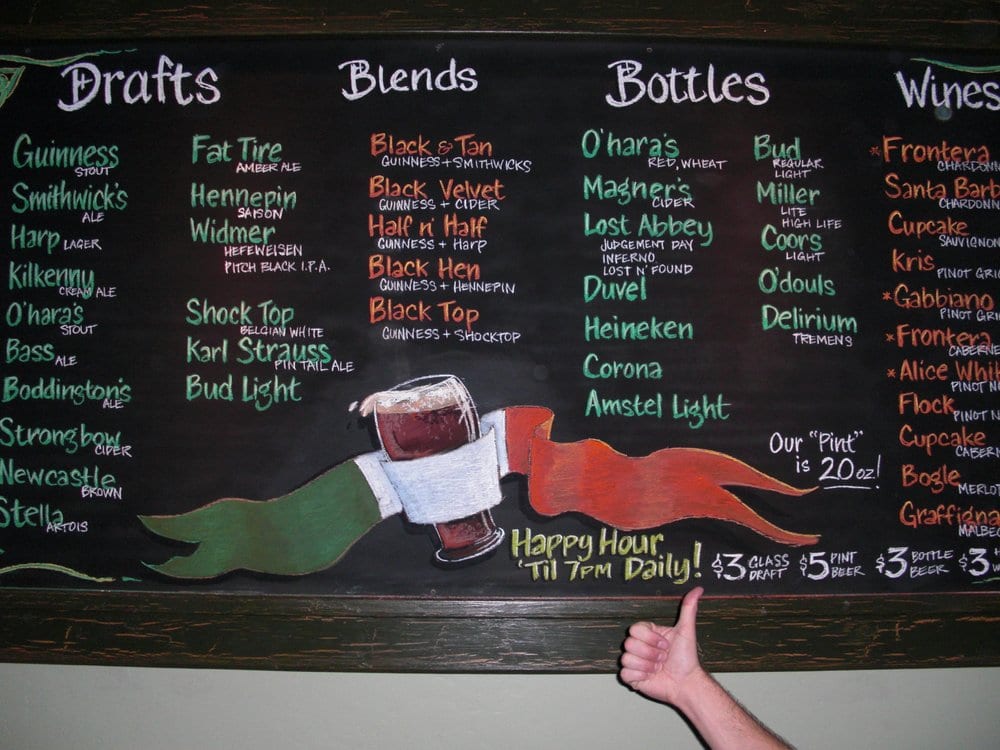 Drafts
Guinness
STOUT
Smithwick's
ALE
Harp LAGER
Kilkenny
CREAM ALE
O'hara's
STOUT
Bass ALE
Boddington's
ALE
Strongbow
CIDER
Newcastle
BROWN
Stella
ARTOIS
Fat Tire
AMBER ALE
Hennepin
SAISON
Widmer
HEFEWEISEN
PITCH BLACK I.P.A.
Shock Top
BELGIAN WHITE
Karl Strauss
PINTAIL ALE
Bud Light
Blends
Black & Tan
GUINNESS + SMITHWICKS
Black Velvet
GUINNESS + CIDER
Half n' Half
GUINNESS + HARP
Black Hen
GUINNESS + HENNEPIN
Black Top
GUINNESS + SHOCKTOP
Bottles
O'hara's
RED, WHEAT
Magner's
CIDER
Lost Abbey
JUDGEMENT DAY
INFERNO
LOST N' FOUND
Duvel
Heineken
Corona
Amstel Light
Bud
REGULAR
LIGHT
Miller
LITE
HIGH LIFE
Coors
LIGHT
O'douls
Delirium
TREMENS
Wines
*Frontera
CHARDONN
Santa Barb
CHARDONN
Cupcake
SAUVIGNON
Kris PINOT GRI
*Gabbiano
PINOT GRI
*Frontera
CABERNE
*Alice Whit
PINOT NO
Flock PINOT N
Cupcake
CABERN
Bogle
MERLOT
Graffigna
MALBEC
Our "Pint"
is 20 oz!
Happy Hour
'Til 7PM Daily!
$3 GLASS DRAFT $5 PINT BEER $3 BOTTLE BEER $3